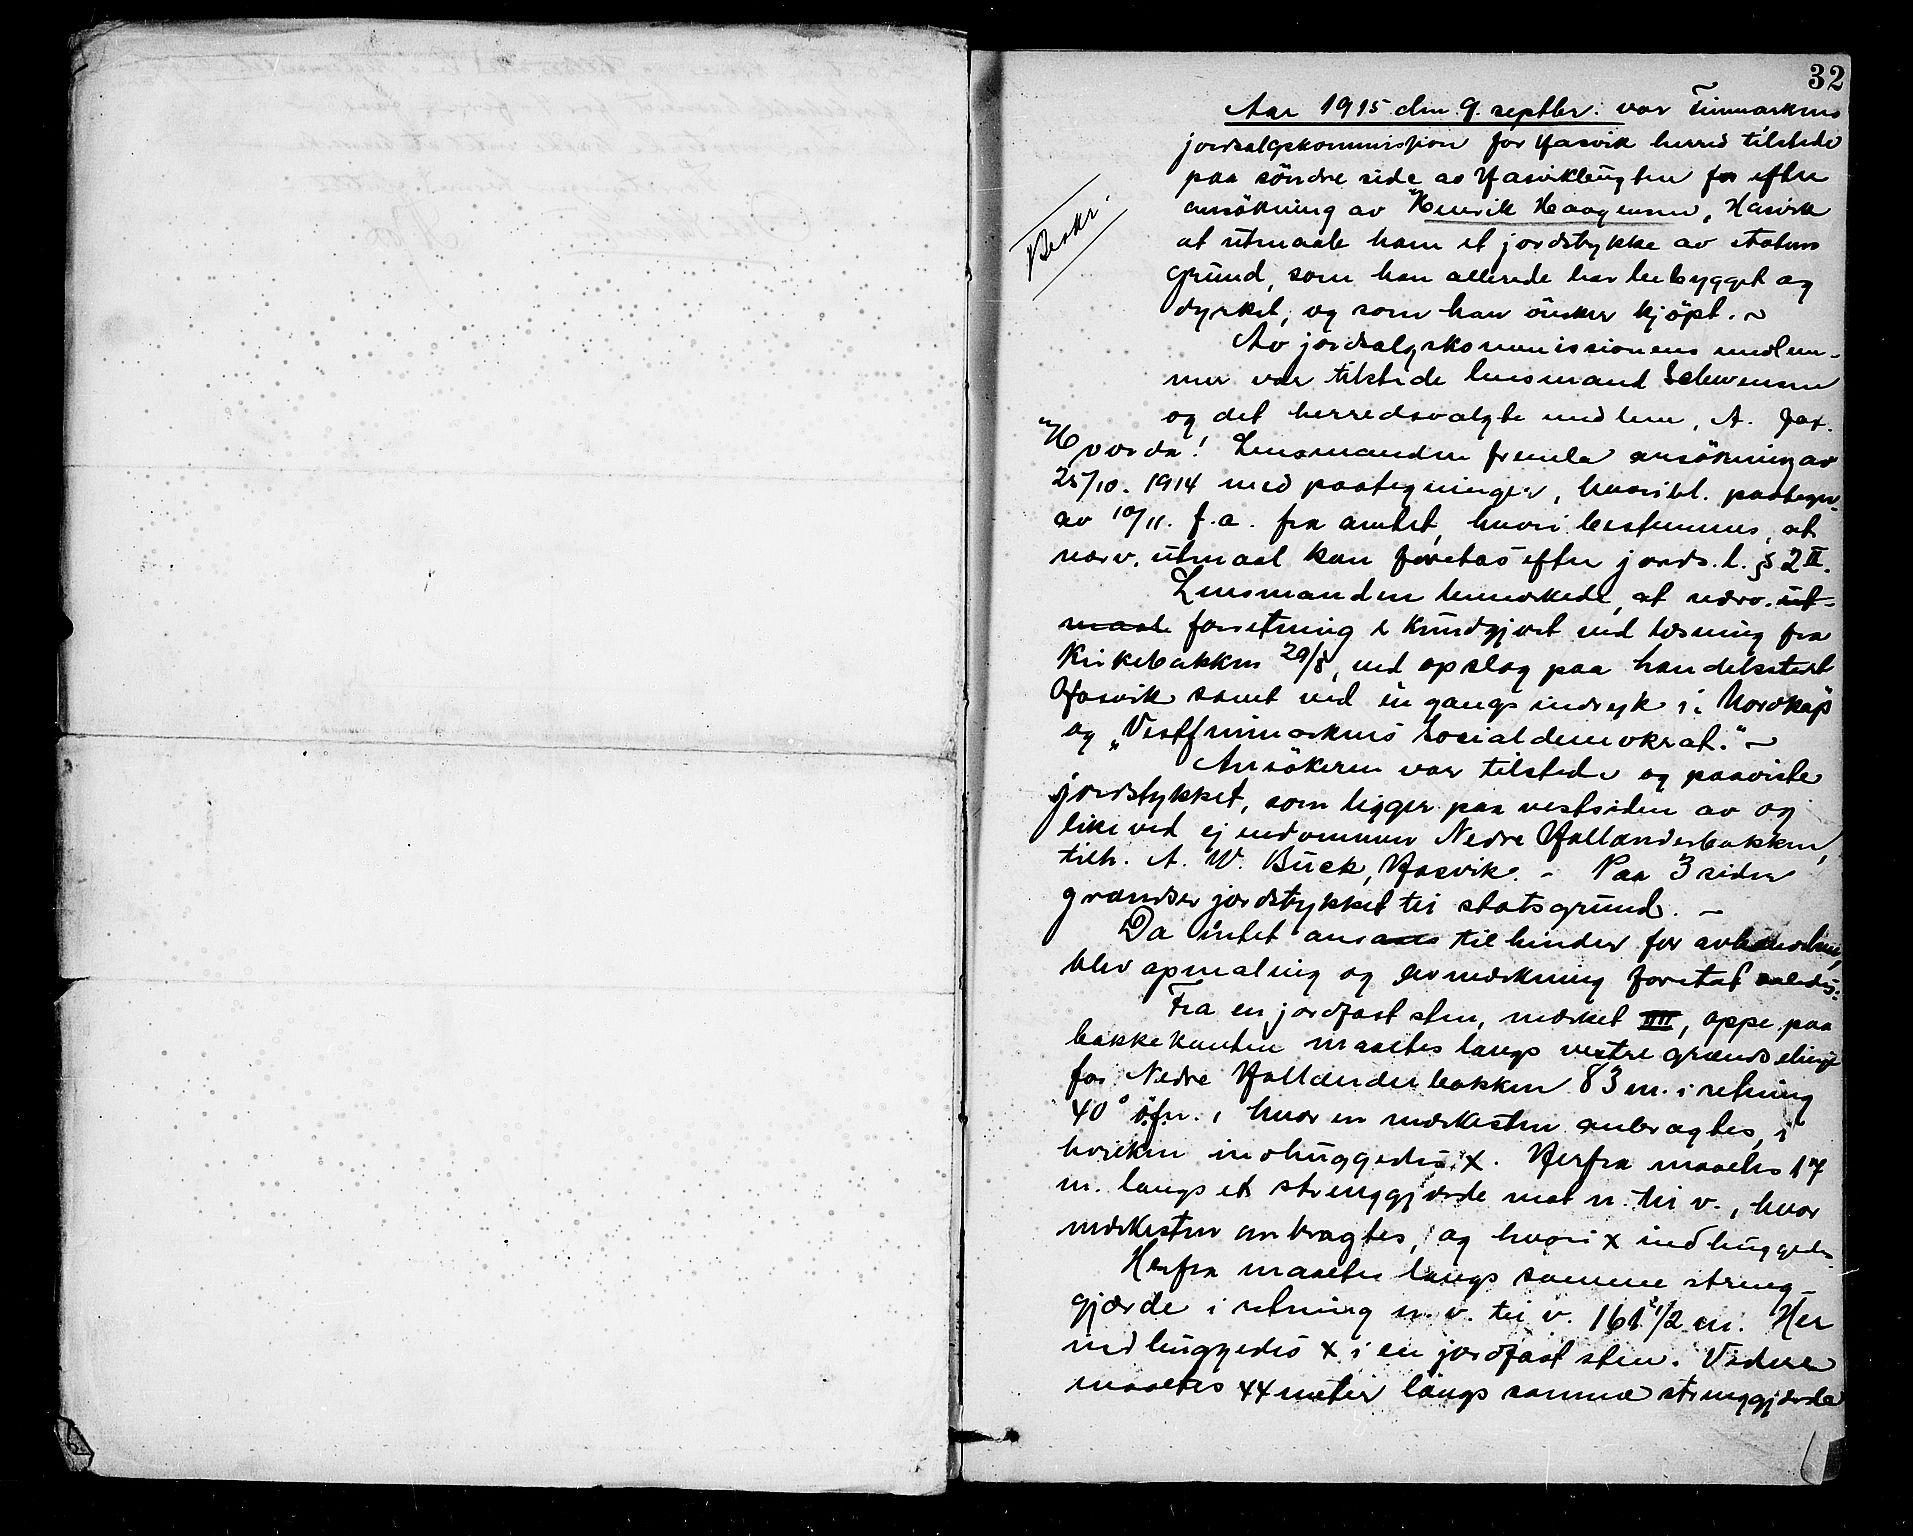 32
Aar 1915 den 9. septbr. var Finmarkens
jordsalgskommission for Hasvik herred tilstede
paa söndre side av Hasvikbugten for efter
ansökning av Henrik Haagensen, Hasvik
Beskr.
at utmaale ham et jordstykke av statens
grund, som han allerede har bebygget og
dyrket, og som han önsker kjöpt. ~
Av jordsalgskommissionens medlem-
mer var tilstede lensmand Schwensen
og det herredsvalgte medlem, A.
Lensmanden fremla ansökning av
25/10. 1914 med paategninger, hvoribl. paategn.
av 10/11. f.a. fra amtet, hvori bestemmes, at
nærv. utmaal kan foretas efter jords.l. § 2 II.
Lensmanden bemerkede, at nærv. ut-
maal forretning er kundgjort ved læsning fra
Kirkebakken 29/8, ved opslag paa handelsstedet
Hasvik samt ved en gangs indryk i Nordkap
og „Vestfinmarkens Socialdemokrat." ~
Ansökeren var tilstede og paaviste
jordstykket, som ligger paa vestsiden av og
like ved ejendommen Nedre Hollænderbakken,
tilh. A. W. Buck, Hasvik. - Paa 3 sider
grændser jordstykket til statsgrund. -
Da intet ansaaes til hinder for avhændelse,
blev opmaling og avmerkning foretat saaledes:
Fra en jordfast sten, merket IIII, oppe paa
bakkekanten maaltes langs vestre grændselinje
for Nedre Hollænderbakken 83 m. i retning
40° ö.f.n., hvor en merkesten anbragtes, i
hvilken indhuggedes X. Herfra maaltes 17
m. langs et strenggjærde mot n. til v., hvor
merkesten anbragtes, og hvori x indhuggedes
Herfra maaltes langs samme streng-
gjærde i retning n. v. til v. 161 1/2 m. Her
indhuggedes x i en jordfast sten. Videre
maaltes 44 meter langs samme strenggjærde